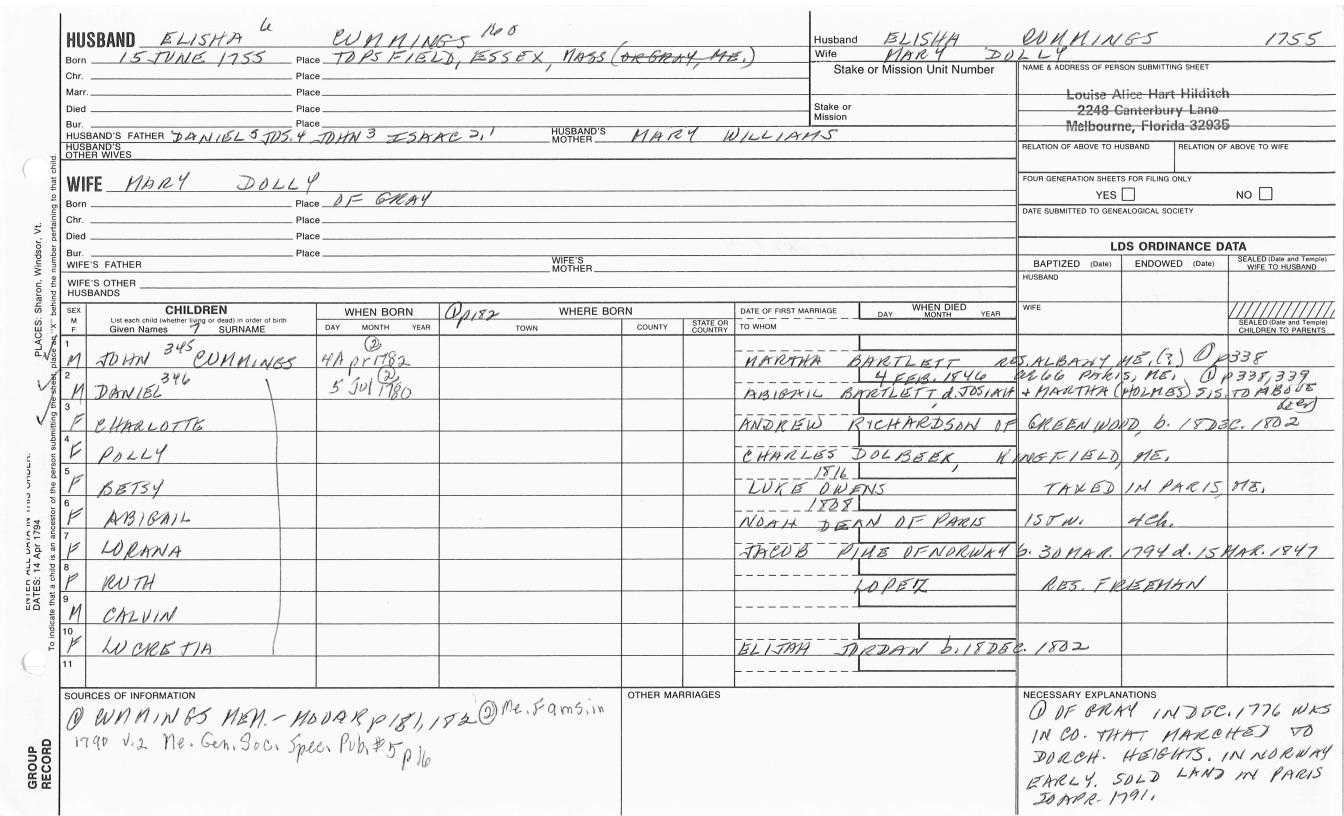 HUSBAND ELISHA 6 CUMMINGS No 8
Born 15 JUNE 1755 Place TOPSFIELD, ESSEX, MASS (OR GRAY, ME.)
Chr. Place
Marr. Place
Died Place
Bur. Place
HUSBAND'S FATHER DANIEL 5 JOS. 4 JOHN 3 ISAAC 2, 1 HUSBAND'S MOTHER MARY WILLIAMS
HUSBAND'S OTHER WIVES
Husband ELISHA CUMMINGS 1755
Wife MARY DOLLY
Stake or Mission Unit Number
Stake or Mission
NAME & ADDRESS OF PERSON SUBMITTING SHEET
Louise Alice Hart Hilditch
2248 Canterbury Lane
Melbourne, Florida 32935
RELATION OF ABOVE TO HUSBAND RELATION OF ABOVE TO WIFE
FOUR GENERATION SHEETS FOR FILING ONLY
YES NO
DATE SUBMITTED TO GENEALOGICAL SOCIETY
WIFE MARY DOLLY
Born Place OF GRAY
Chr. Place
Died Place
Bur. Place
WIFE'S FATHER WIFE'S MOTHER
WIFE'S OTHER HUSBANDS
LDS ORDINANCE DATA
BAPTIZED (Date) ENDOWED (Date) SEALED (Date and Temple) WIFE TO HUSBAND
HUSBAND
WIFE
SEALED (Date and Temple) CHILDREN TO PARENTS
SEX M F
CHILDREN
List each child (whether living or dead) in order of birth
Given Names 7 SURNAME
WHEN BORN
DAY MONTH YEAR
① p182 WHERE BORN
TOWN COUNTY STATE OR COUNTRY
DATE OF FIRST MARRIAGE
TO WHOM
WHEN DIED
DAY MONTH YEAR
1 M JOHN 345 CUMMINGS 4 Apr 1782 ② MARTHA BARTLETT RES. ALBANY ME, (?) ① p338
2 M DANIEL 346 5 Jul 1780 ② 4 FEB. 1846 AE 66 PARIS, ME. ① p338, 339
ABIGAIL BARTLETT d. JOSIAH + MARTHA (HOLMES) SIS. TO ABOVE
3 F CHARLOTTE ANDREW RICHARDSON OF GREENWOOD, b. 18 DEC. 1802
4 F POLLY CHARLES DOLBEEK, KINGFIELD, ME.
5 F BETSY 1816 LUKE OWENS TAXED IN PARIS, ME.
6 F ABIGAIL 1808 NOAH DEAN OF PARIS 1ST W. 4 Ch.
7 F LORANA JACOB PIKE OF NORWAY b. 30 MAR. 1794 d. 15 MAR. 1847
8 F RUTH LOPEZ RES. FREEMAN
9 M CALVIN
10 F LUCRETIA ELIJAH JORDAN b. 18 DEC. 1802
11
SOURCES OF INFORMATION
① CUMMINGS MEM. - MOOAR p181, 182 ② Me. Fams. in
1790 V.2 Me. Gen. Soc. Spec. Pub. #5 p16
OTHER MARRIAGES
NECESSARY EXPLANATIONS
① OF GRAY IN DEC. 1776 WAS
IN CO. THAT MARCHED TO
DORCH. HEIGHTS. IN NORWAY
EARLY. SOLD LAND IN PARIS
30 APR. 1791.
PLACES: Sharon, Windsor, Vt.
ENTER ALL DATA IN THIS ORDER:
DATES: 14 Apr 1794
To indicate that a child is an ancestor of the person submitting the sheet, place an "X" behind the number pertaining to that child.
GROUP RECORD